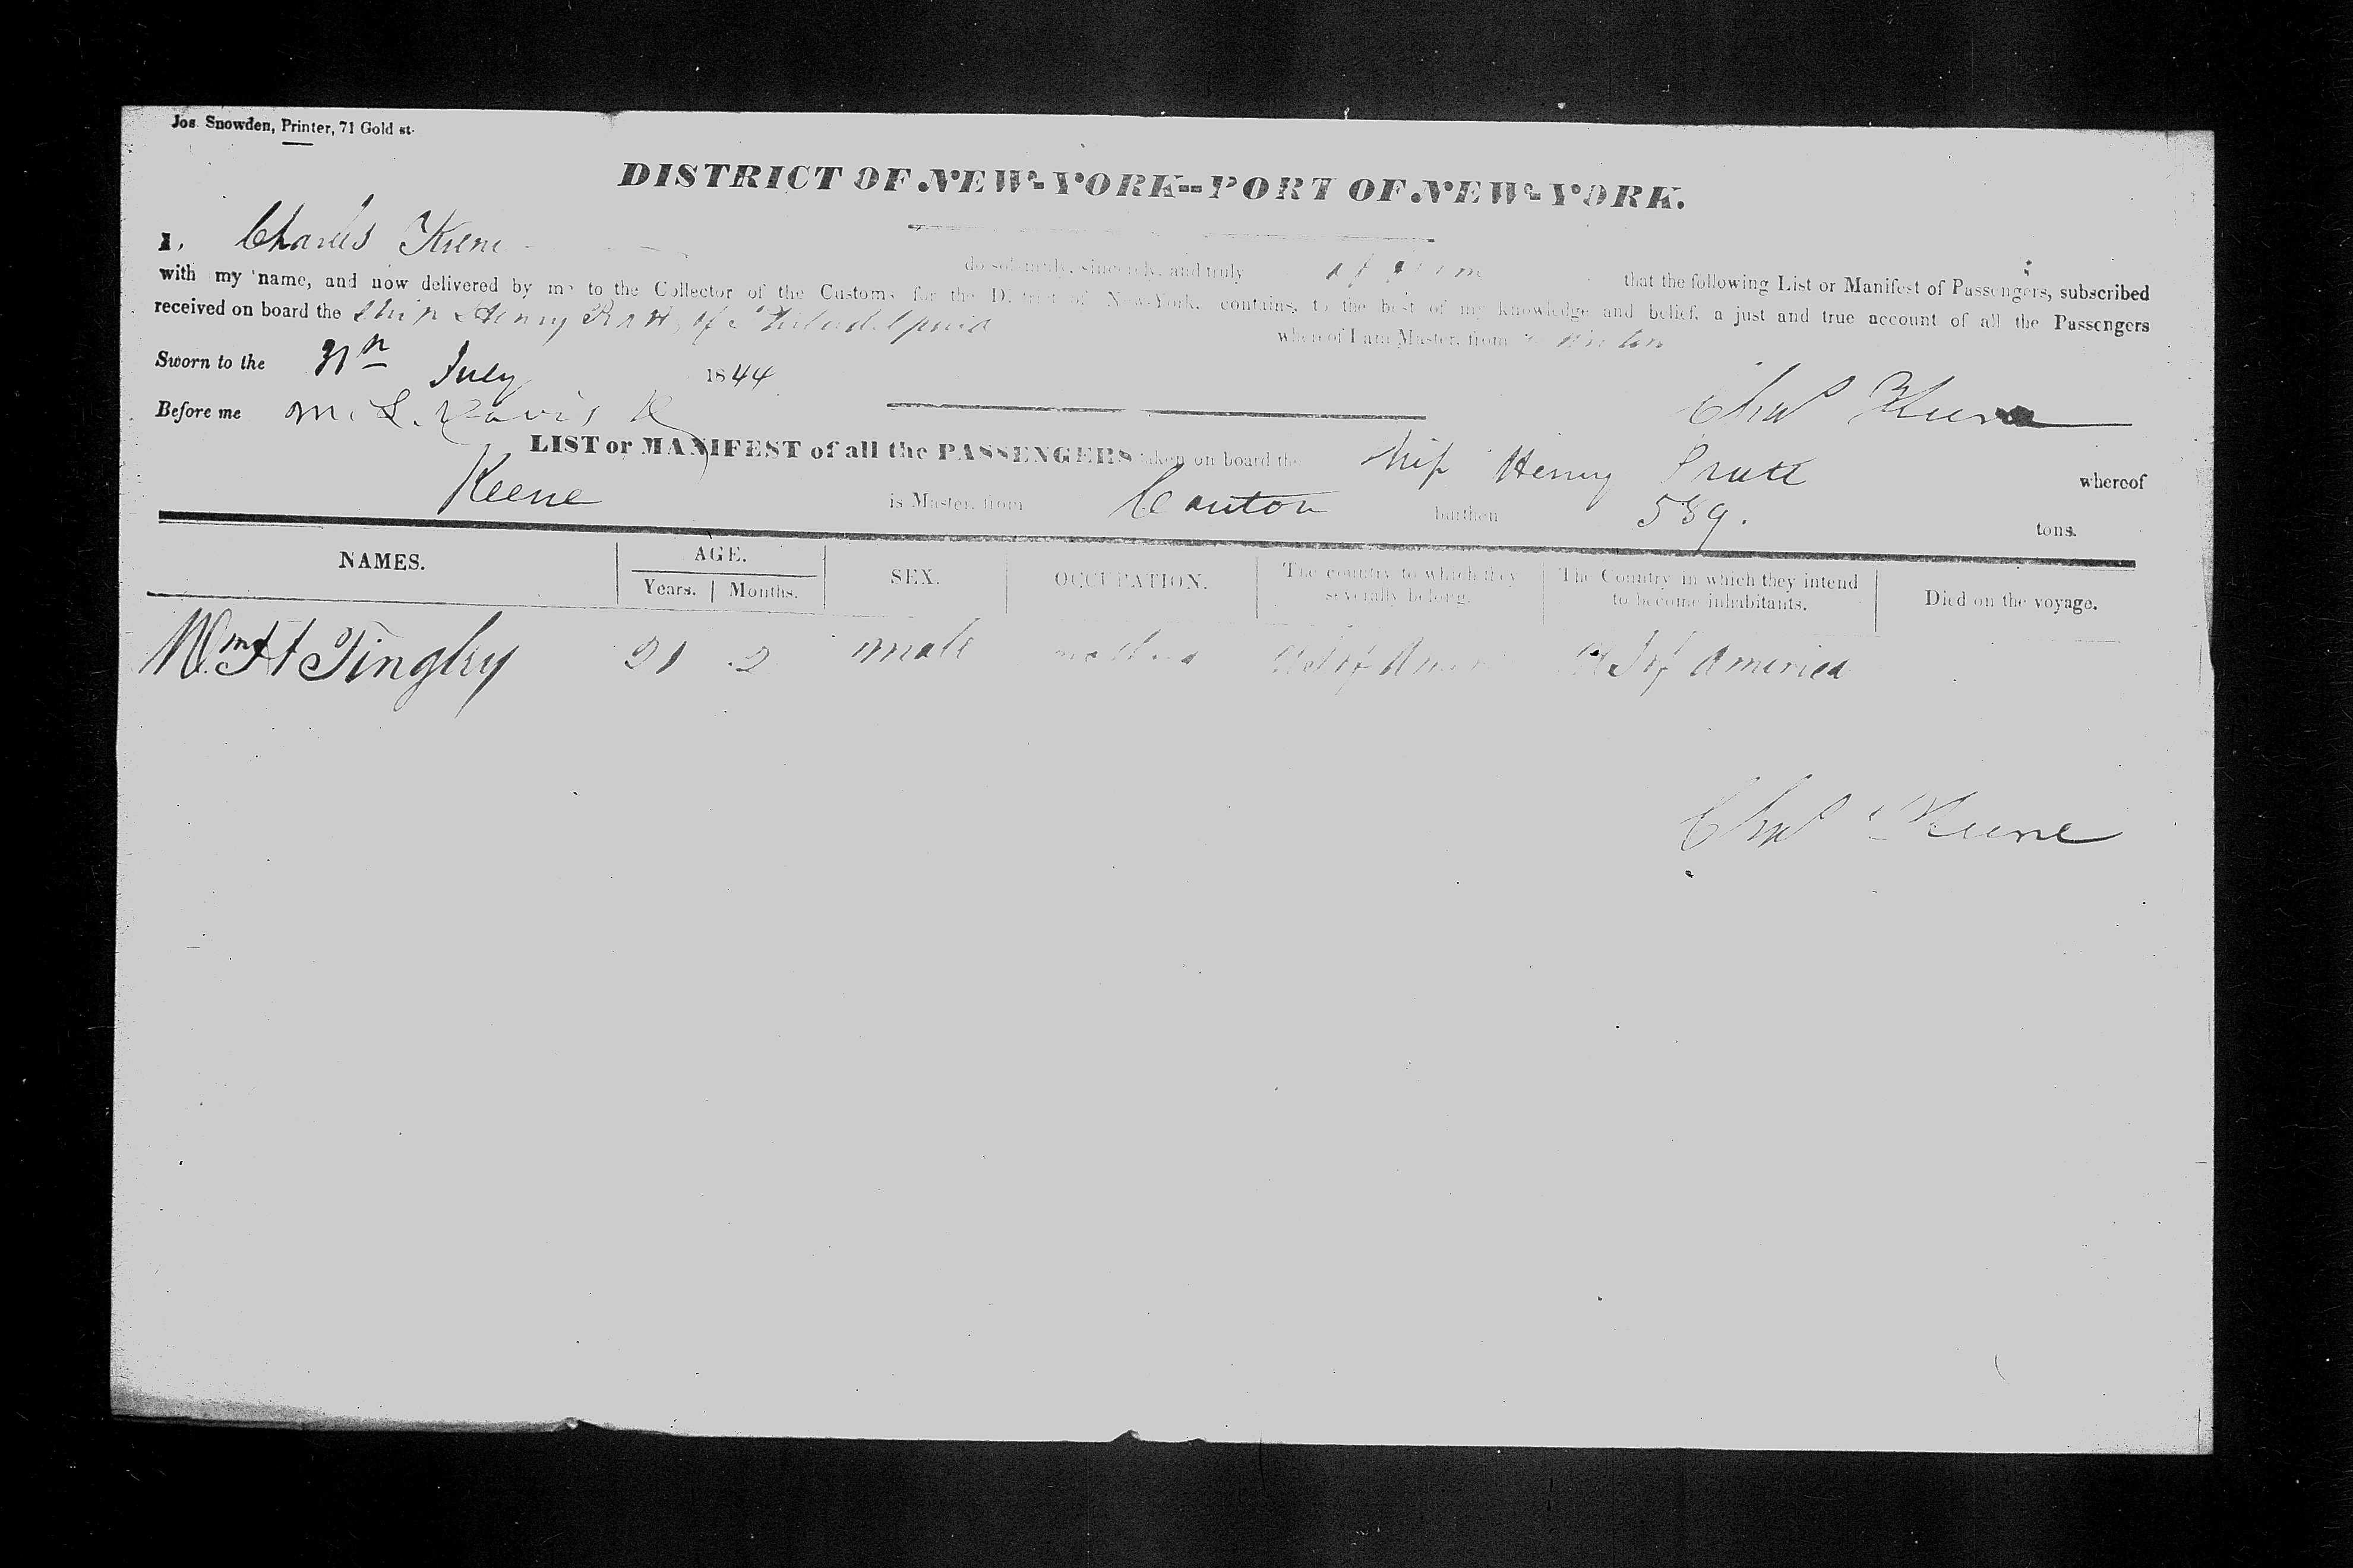 Jos. Snowden, Printer, 71 Gold st.
DISTRICT OF NEW-YORK--PORT OF NEW-YORK.
I, Charles Keene do solemnly, sincerely, and truly affirm that the following List or Manifest of Passengers, subscribed
with my name, and now delivered by me to the Collector of the Customs for the District of New-York, contains, to the best of my knowledge and belief, a just and true account of all the Passengers
received on board the Ship Henry Pratt of Philadelphia whereof I am Master, from Canton
Sworn to the 31st July 1844
Before me M. L. Davis Chas Keene
LIST or MANIFEST of all the PASSENGERS taken on board the Ship Henry Pratt whereof
Keene is Master, from Canton burthen 589. tons.
NAMES. AGE. SEX. OCCUPATION. The country to which they severally belong. The Country in which they intend to become inhabitants. Died on the voyage.
Years. Months.
Wm H Tingley 21 2 male U S of America U S of America
Chas Keene